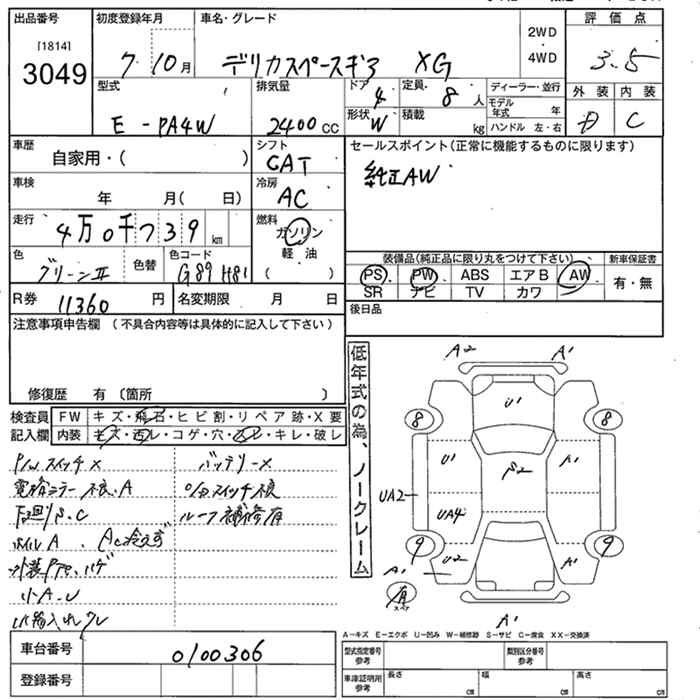 出品番号 初度登録年月 車名・グレード 2WD・4WD 評価点
[1814]
3049
7 10月 デリカスペースギア XG 3.5
型式 排気量 ドア 4 定員 8人 ディーラー・並行 外装 内装
モデル年式 年
E - PA4W 2400cc 形状 W 積載 kg ハンドル 左・右 D C
車歴 シフト セールスポイント(正常に機能するものに限ります)
自家用・( ) CAT 純正AW
車検 冷房
年 月( 日) AC
走行 燃料
4万0千739km ガソリン
軽油
( )
色 色替 色コード 装備品(純正品に限り丸をつけて下さい) 新車保証書
グリーンII G89 H81 PS PW ABS エアB AW 有・無
SR ナビ TV カワ
R券 11360円 名変期限 月 日 後日品
注意事項申告欄(不具合内容等は具体的に記入して下さい)
修復歴 有〔箇所 〕
低年式の為、ノークレーム
検査員記入欄 FW キズ・飛石・ヒビ割・リペア跡・X要
内装 キズ・汚レ・コゲ・穴・スレ・キレ・破レ
P/Wスイッチ× バッテリー×
電格ミラー不良.A O/Dスイッチ不良
下廻りS.C ルーフ補修有
ホイルA. AC冷えず
小A-U
A2 A1
8 U1 8
U1 S2 A1
UA2
UA4
9 U2 A1 9
A1
有 スペア
A1
A-キズ E-エクボ U-凹み W-補修跡 S-サビ C-腐食 XX-交換済
車台番号 0100306
登録番号
型式指定番号 参考 類別区分番号 参考
車庫証明用 参考 長さ cm 幅 cm 高さ cm